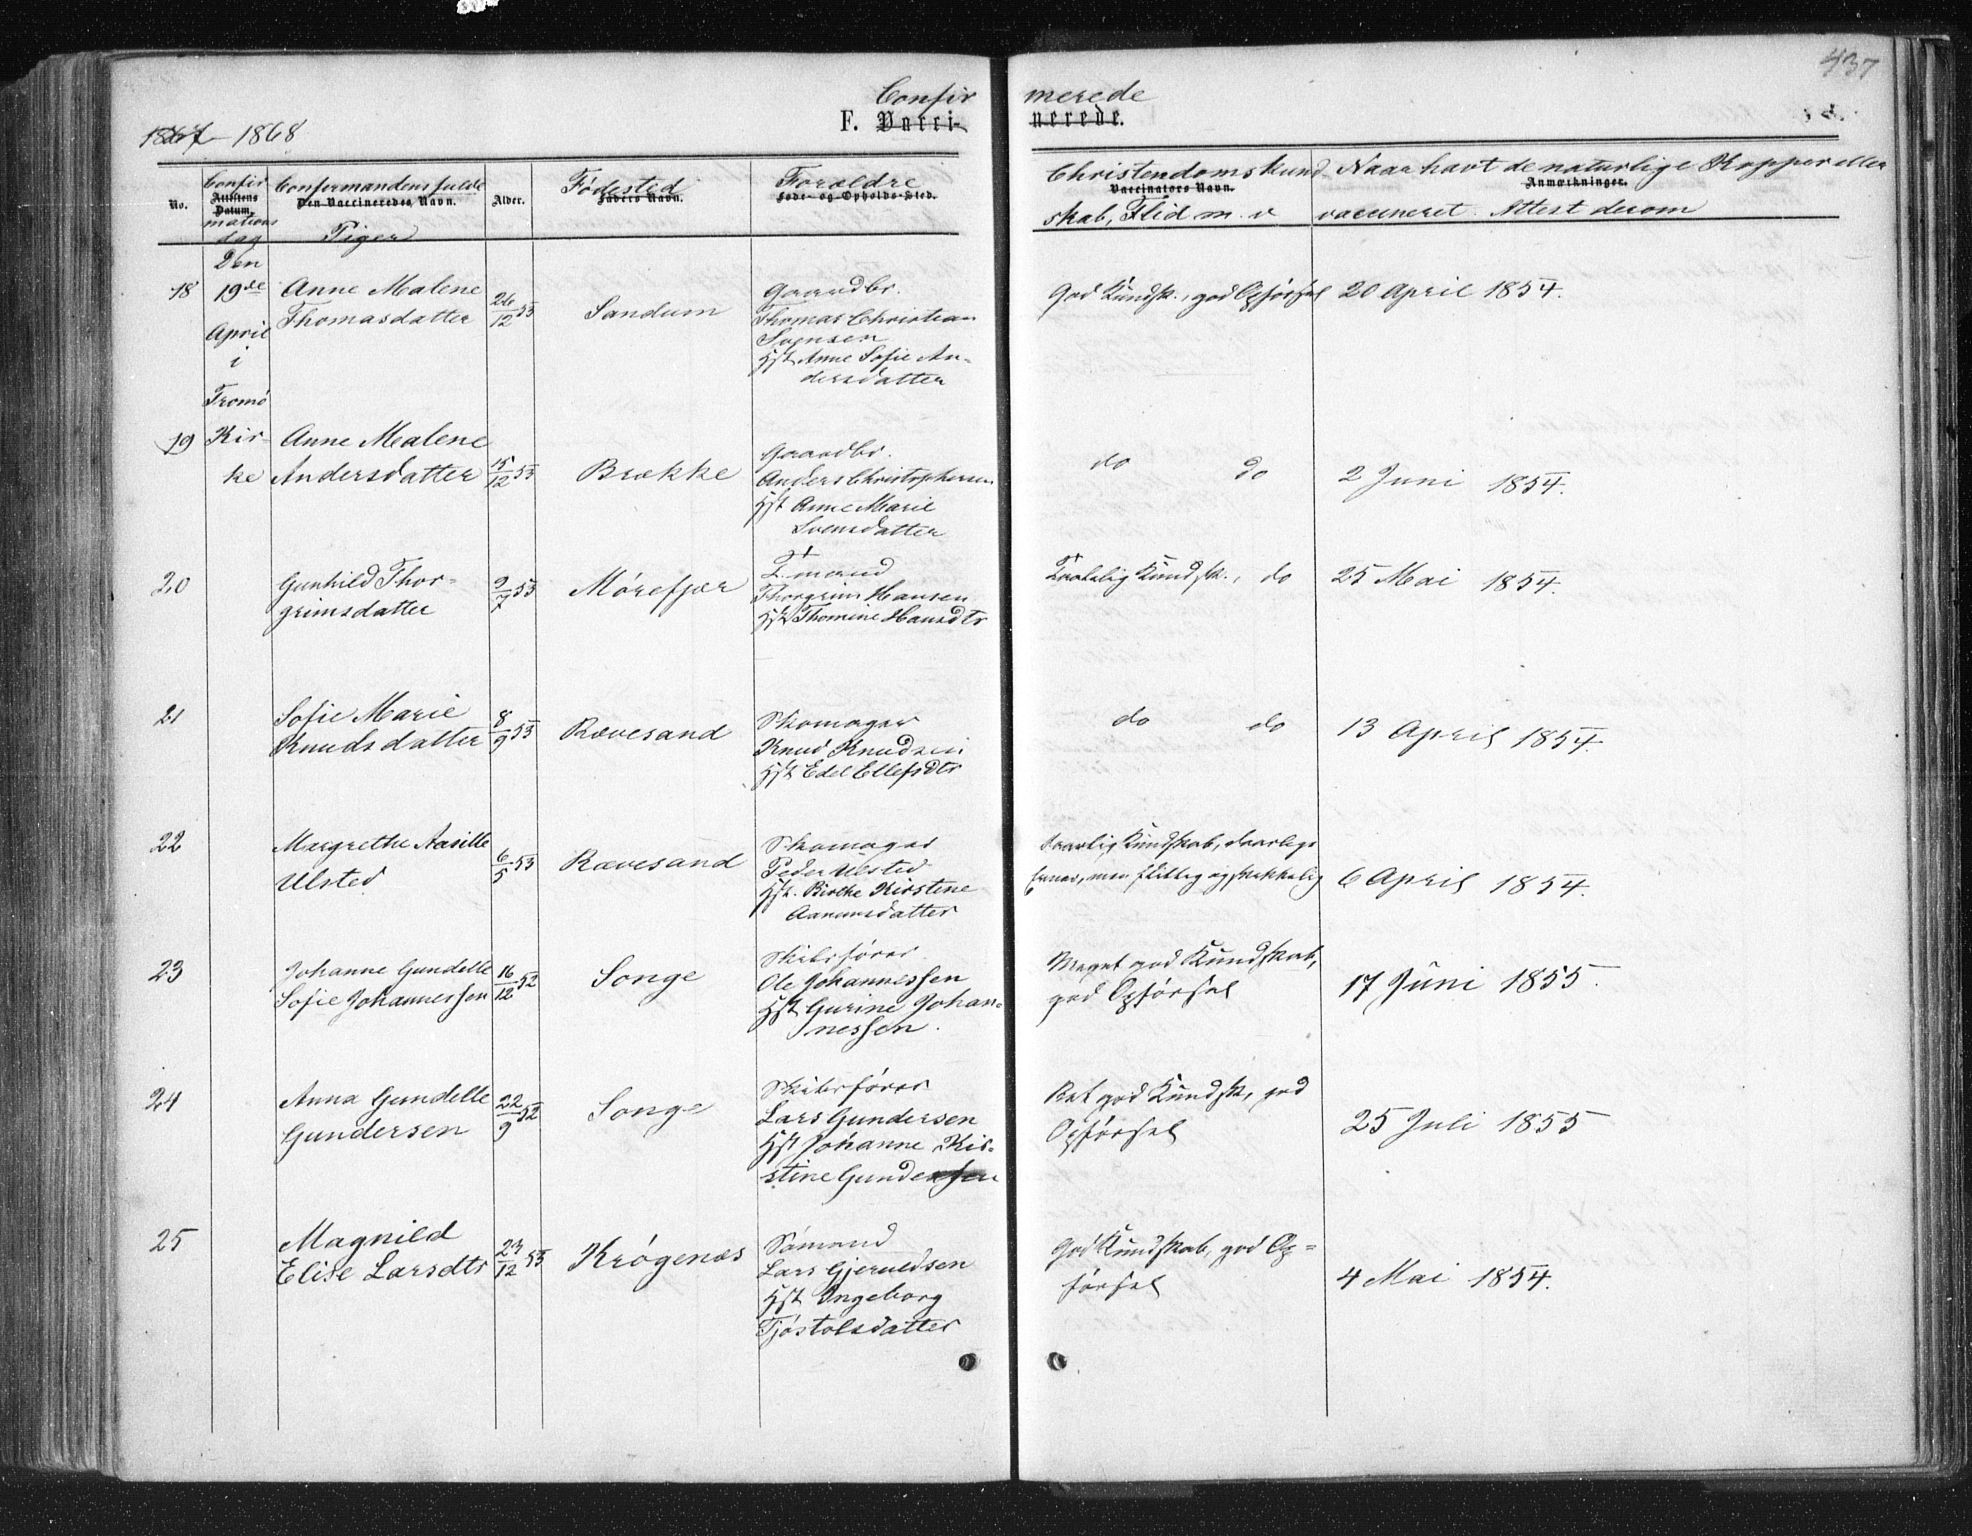 437
Confirmerede
1867 - 1868
F. Vaccinerede.
No.
Confirmations dag
Attestens Datum.
Confirmandens fulde
Den Vaccineredes Navn.
Piger
Alder.
Fødested
Faders Navn.
Forældre
Føde- og Opholds-Sted.
Christendomskund
Vaccinators Navn.
skab, Flid m. v
Naar havt de naturlige Kopper eller
Anmærkninger.
vaccineret. Attest derom
Den
19de
April
i
Tromø
Kir-
ke
18
Anne Malene
Thomasdatter
26/12 53
Sandum
Gaardbr.
Thomas Christian
Svensen
Hst Anne Sofie An-
dersdatter
God Kundsk., god Opførsel
20 April 1854.
19
Anne Malene
Andersdatter
15/12 53
Brække
Gaardbr.
Anders Christophersen
Hst Anne Marie
Svensdatter
do do
2 Juni 1854.
20
Gunhild Thor-
grimsdatter
9/7 53
Mørefjær
Thorgrim Hansen
Hst Thomine Hansdtr
Kundsk., do
25 Mai 1854.
21
Sofie Marie
Knudsdatter
8/9 53
Rævesand
Skomager
Knud Knudsen
Hst Edel Ellefsdtr
do do
13 April 1854.
22
Margrethe Aasille
Ulsted
6/5 53
Rævesand
Skomager
Peder Ulsted
Hst. Birthe Kirstine
Aanonsdatter
Daarlig Kundskab, daarlige
Evner, men flittig og skikkelig
6 April 1854.
23
Johanne Gundelle
Sofie Johannessen
16/12 52
Songe
Skibsfører
Ole Johannessen
Hst Gurine Johan-
nessen.
Meget god Kundskab,
god Opførsel
17 Juni 1855.
24
Anna Gundelle
Gundersen
22/9 52
Songe
Skibsfører
Lars Gundersen
Hst Johanne Kir-
stine Gundersen
Ret god Kundsk, god
Opførsel
25 Juli 1855
25
Magnild
Elise Larsdtr
23/12 53
Krøgenæs
Sømand
Lars Gjeruldsen
Hst Ingeborg
Tjøstolsdatter
God Kundskab, god Op-
førsel
4 Mai 1854.